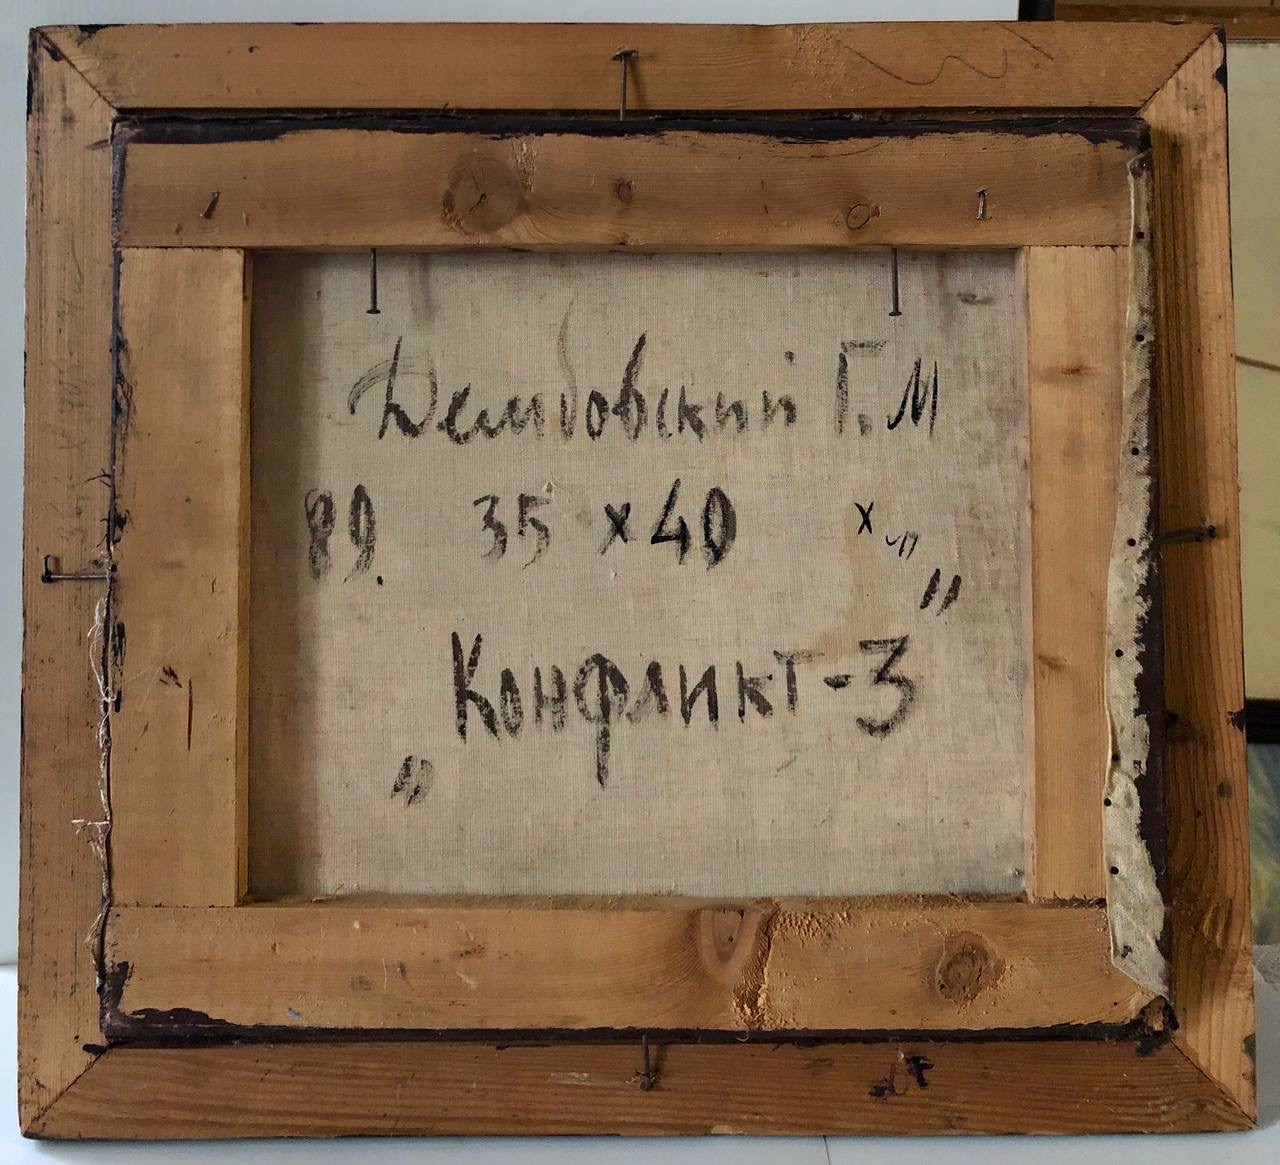 Дембовский Г.М
89. 35 х 40 х "
„Конфликт-3"